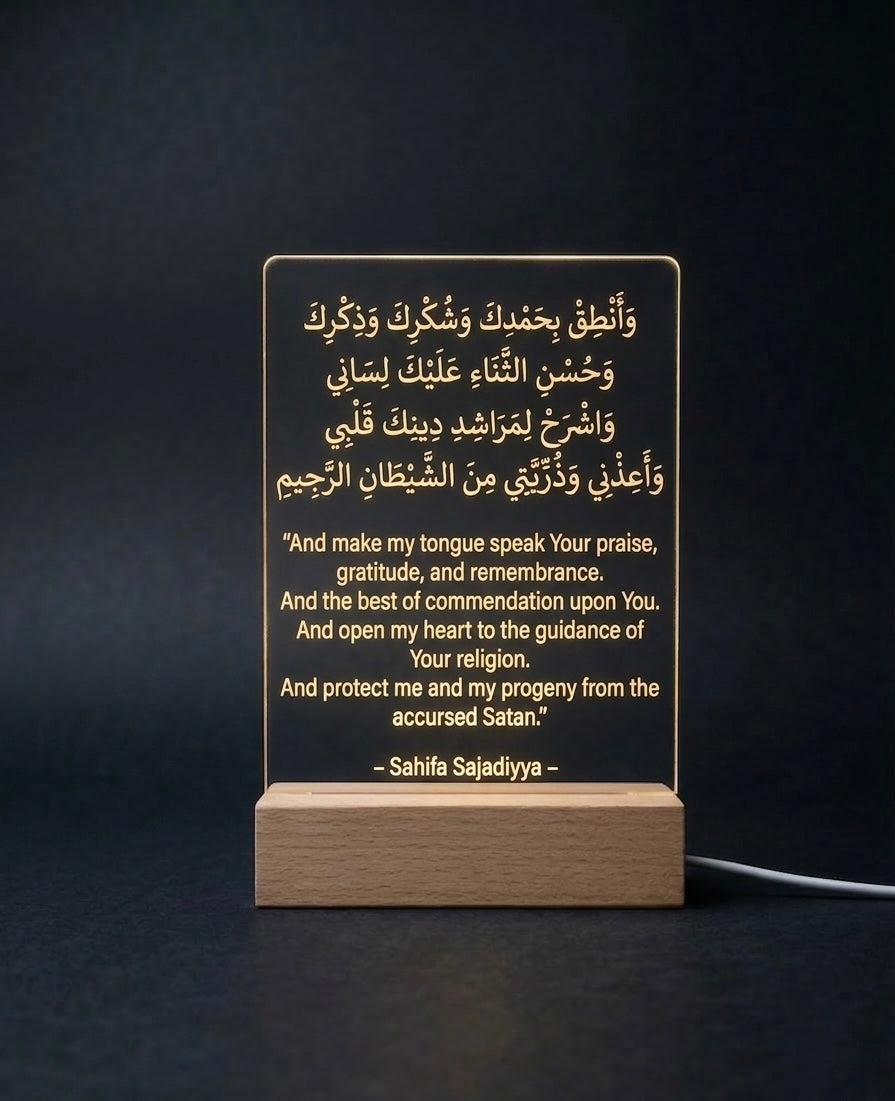 وَأَنْطِقْ بِحَمْدِكَ وَشُكْرِكَ وَذِكْرِكَ
وَحُسْنِ الثَّنَاءِ عَلَيْكَ لِسَانِي
وَاشْرَحْ لِمَرَاشِدِ دِينِكَ قَلْبِي
وَأَعِذْنِي وَذُرِّيَّتِي مِنَ الشَّيْطَانِ الرَّجِيمِ
“And make my tongue speak Your praise,
gratitude, and remembrance.
And the best of commendation upon You.
And open my heart to the guidance of
Your religion.
And protect me and my progeny from the
accursed Satan.”
– Sahifa Sajadiyya –